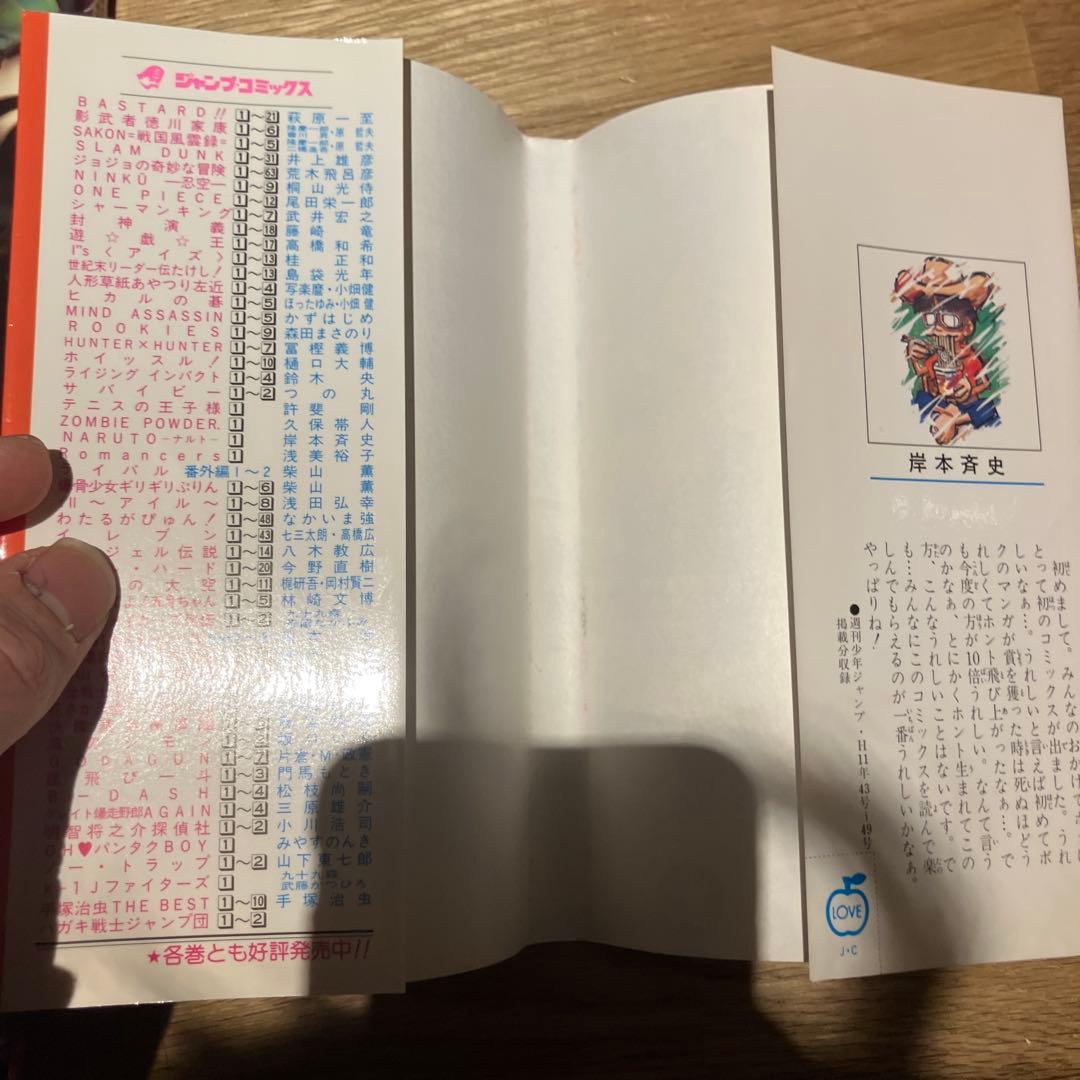 ジャンプ・コミックス
BASTARD!! 1〜21 萩原一至
影武者徳川家康 1〜6 隆慶一郎・原哲夫
SAKON=戦国風雲録= 1〜5 隆慶一郎・原哲夫
SLAM DUNK 1〜31 井上雄彦
ジョジョの奇妙な冒険 1〜63 荒木飛呂彦
NINKŪ —忍空— 1〜9 桐山光侍
ONE PIECE 1〜12 尾田栄一郎
シャーマンキング 1〜7 武井宏之
封神演義 1〜18 藤崎竜
遊☆戯☆王 1〜17 高橋和希
I"s〈アイズ〉 1〜13 桂正和
世紀末リーダー伝たけし! 1〜13 島袋光年
人形草紙あやつり左近 1〜4 写楽麿・小畑健
ヒカルの碁 1〜5 ほったゆみ・小畑健
MIND ASSASSIN 1〜5 かずはじめ
ROOKIES 1〜9 森田まさのり
HUNTER×HUNTER 1〜7 冨樫義博
ホイッスル! 1〜10 樋口大輔
ライジング インパクト 1〜4 鈴木央
サバイビー 1〜2 つの丸
テニスの王子様 1 許斐剛
ZOMBIE POWDER. 1 久保帯人
NARUTO —ナルト— 1 岸本斉史
Romancers 1 浅美裕子
イバル 番外編1〜2 柴山薫
骨少女ギリギリぷりん 1〜6 柴山薫
〜アイル〜 1〜8 浅田弘幸
わたるがぴゅん! 1〜48 なかいま強
イレブン 1〜43 七三太朗・高橋広
ジェル伝説 1〜14 八木教広
・ハード 1〜20 今野直樹
の大空 1〜11 梶研吾・岡村賢二
1〜5 林崎文博
1〜2 九十九森
ODAGUN 1〜7 片倉・M・政憲
飛び一斗 1〜3 門馬もとき
—DASH 1〜4 松枝尚嗣
爆走野郎AGAIN 1〜4 三原雄介
智将之介探偵社 1〜2 小川浩司
OH♥パンタクBOY 1 みやすのんき
ー・トラップ 1〜2 山下東七郎
K-1 Jファイターズ 1 九十九森 武藤かつひろ
手塚治虫THE BEST 1〜10 手塚治虫
ハガキ戦士ジャンプ団 1〜2
★各巻とも好評発売中!!
岸本斉史
初めまして。みんなのおかげで
とって初のコミックスが出ました。うれ
しいなぁ…。うれしいと言えば初めてボ
クのマンガが賞を獲った時は死ぬほどう
れしくてホント飛び上がったなぁ…。で
も今度の方が10倍うれしい。なんて言う
のかなぁ、とにかくホント生まれてこの
方、こんなうれしいことはないです。で
も…みんなにこのコミックスを読んで楽
しんでもらえるのが一番うれしいかなぁ。
やっぱりね!
●週刊少年ジャンプ・H11年43号〜49号
掲載分収録
LOVE
J・C